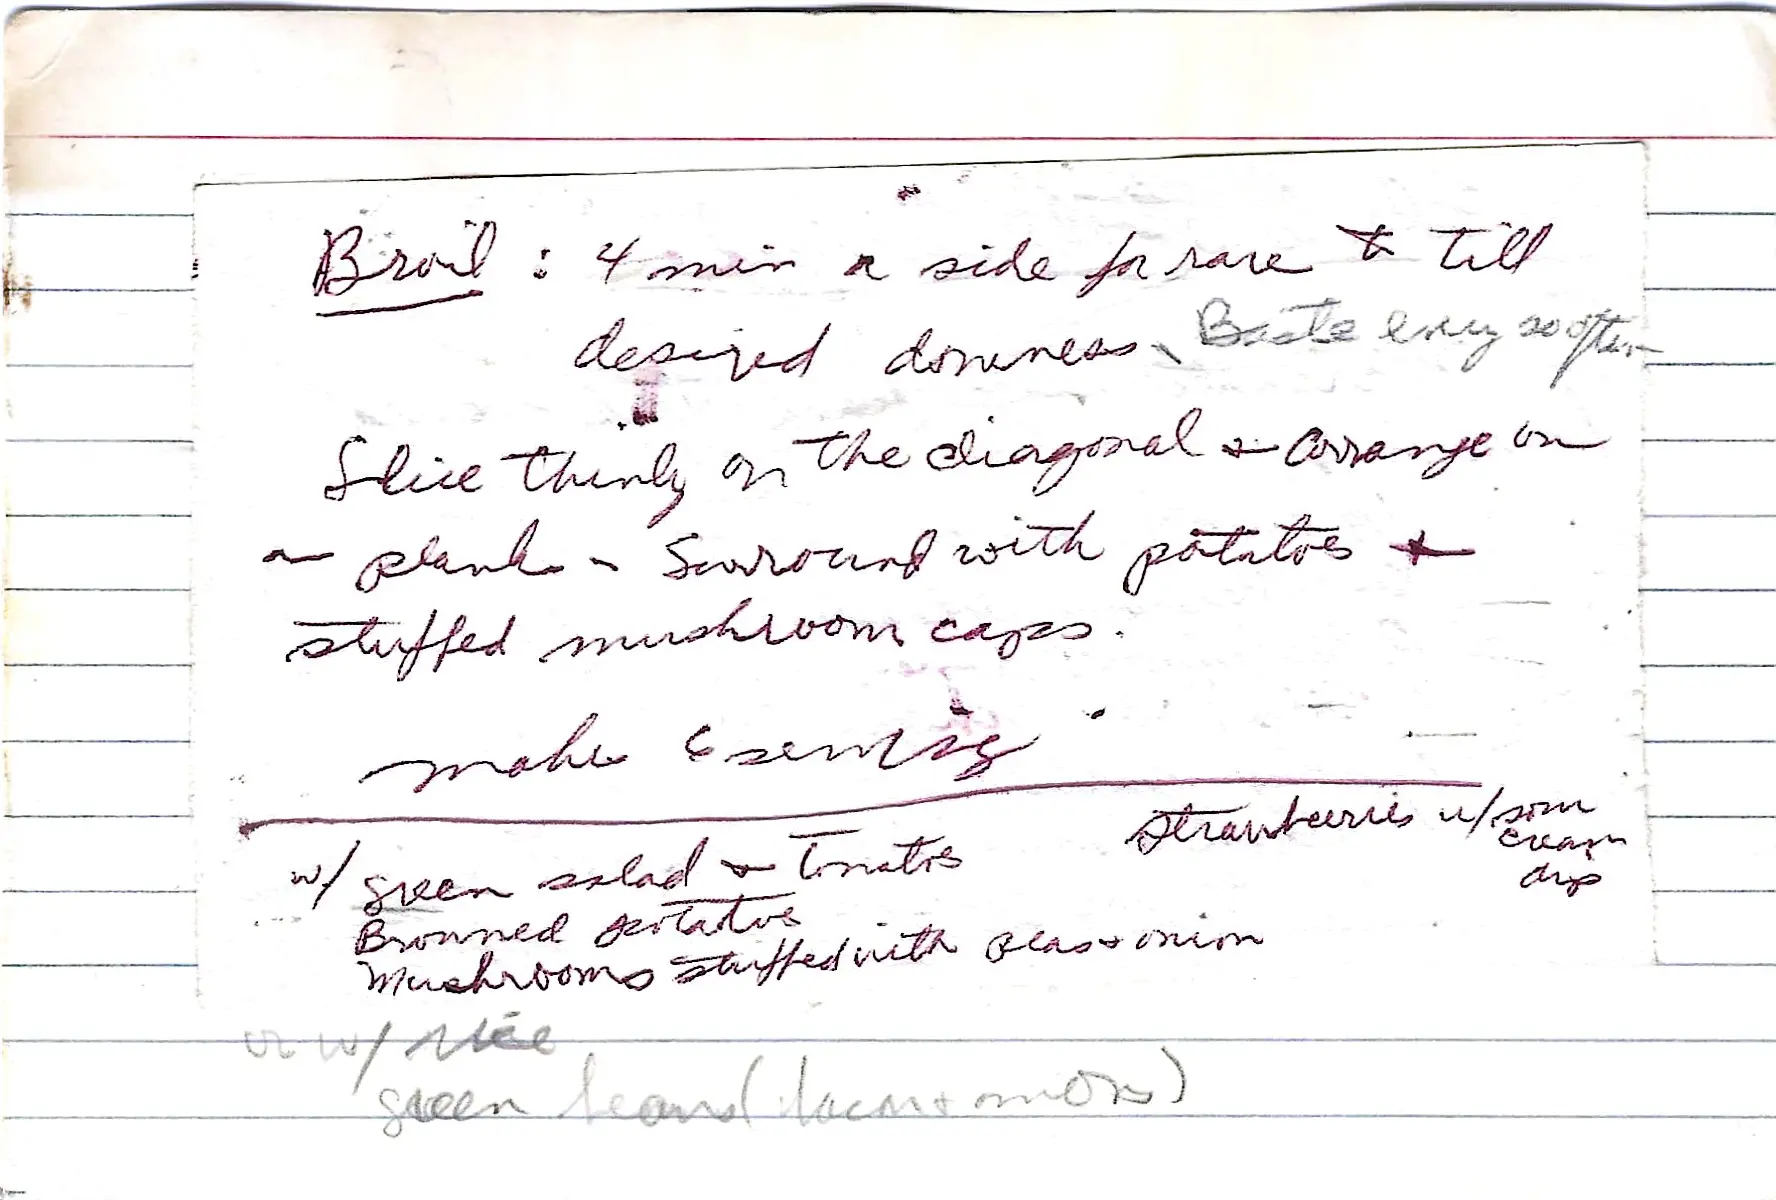 Broil : 4 min a side for rare + till
desired doneness. Baste every so often
Slice thinly on the diagonal + arrange on
a plank - Surround with potatoes +
stuffed mushroom caps.
makes 6 servings
w/ green salad + tomatoes
Browned potatoes
Mushrooms stuffed with peas + onion
strawberries w/ sour
cream
dip
or w/ rice
green beans (bacon + onions)